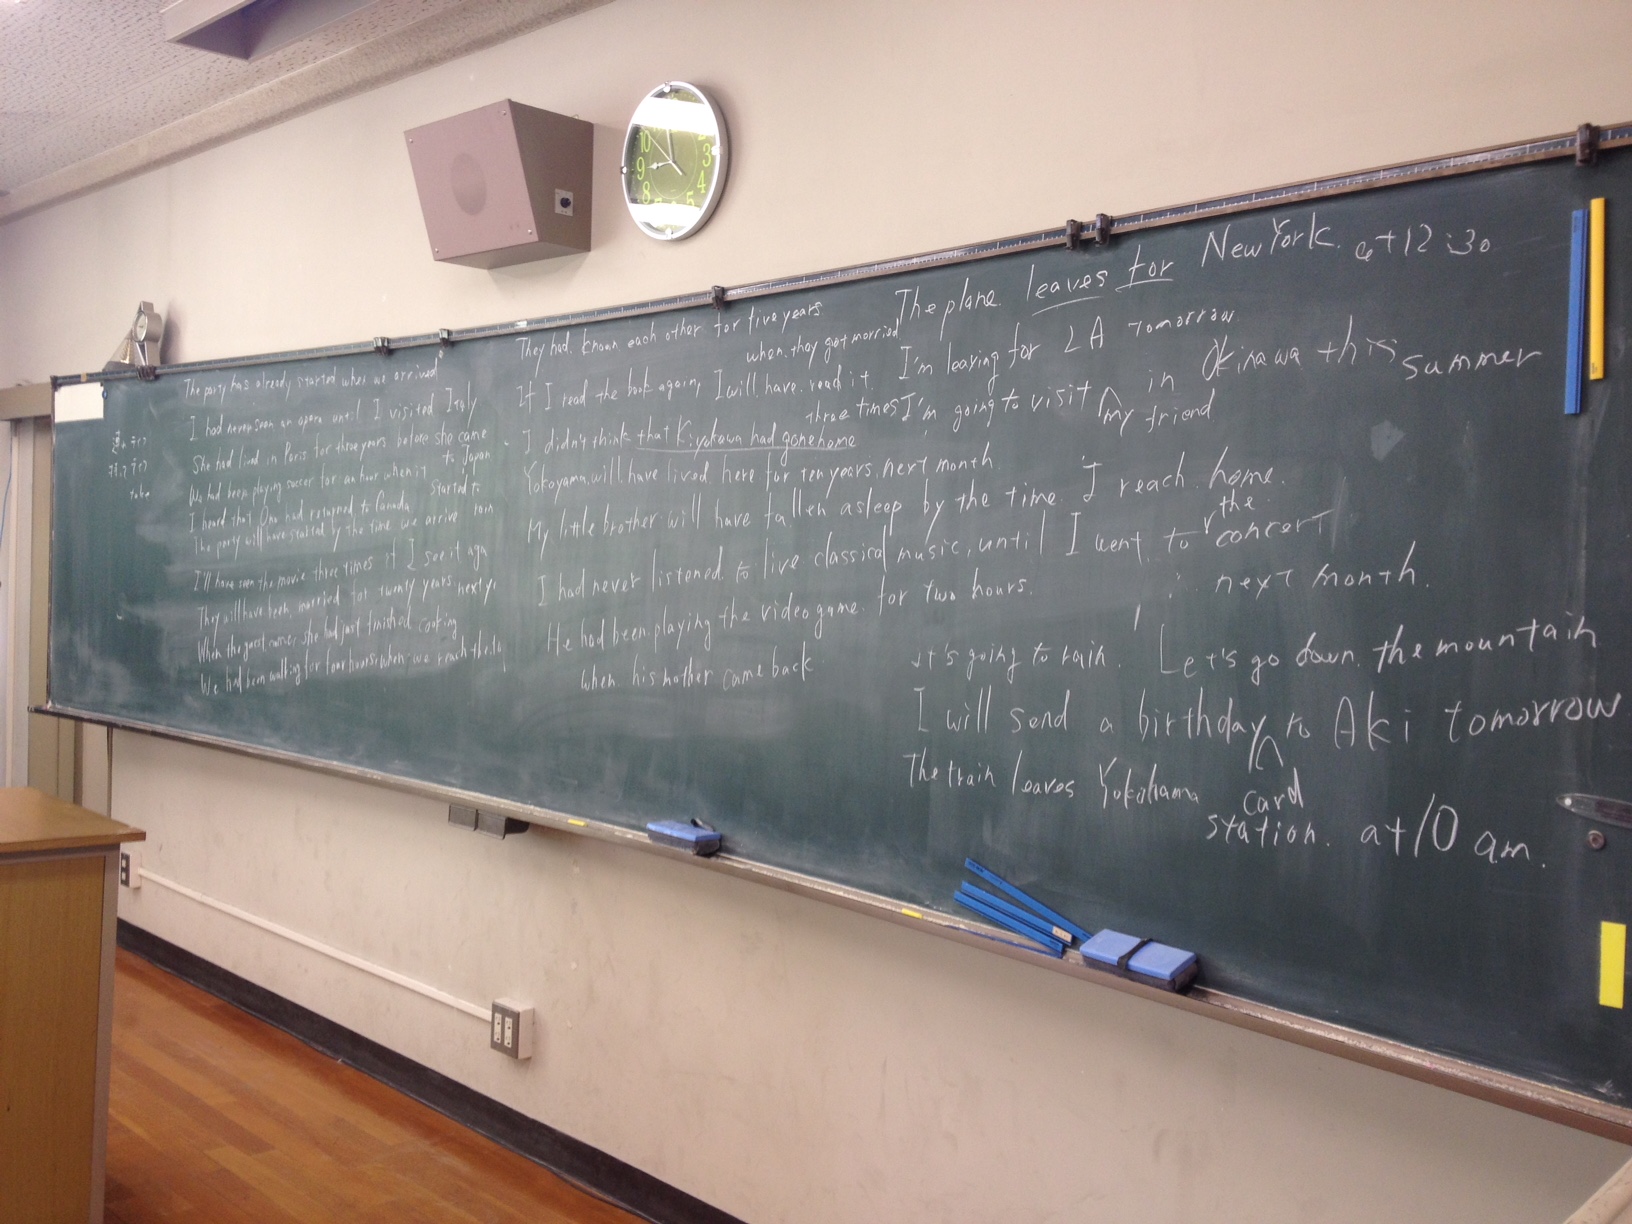 The party has already started when we arrived
I had never seen an opera until I visited Italy
She had lived in Paris for three years before she came
to Japan
We had been playing soccer for an hour when it
started to
rain
I heard that Ono had returned to Canada
The party will have started by the time we arrive
I'll have seen the movie three times if I see it aga
They will have been married for twenty years next ye
When the guest came, she had just finished cooking
We had been walking for four hours when we reach the
take
They had known each other for five years
when they got married
If I read the book again, I will have read it
three times
I didn't think that Kiyokawa had gone home
Yokoyama will have lived here for ten years next month
My little brother will have fallen asleep by the time I reach home.
I had never listened to live classical music, until I went to the concert
He had been playing the video game for two hours.
when his mother came back
The plane leaves for New York at 12:30
I'm leaving for LA tomorrow
I'm going to visit my friend in Okinawa this summer
next month.
it's going to rain. Let's go down the mountain
I will send a birthday card to Aki tomorrow
The train leaves Yokohama
station. at 10 am.
10
9
8
3
4
5